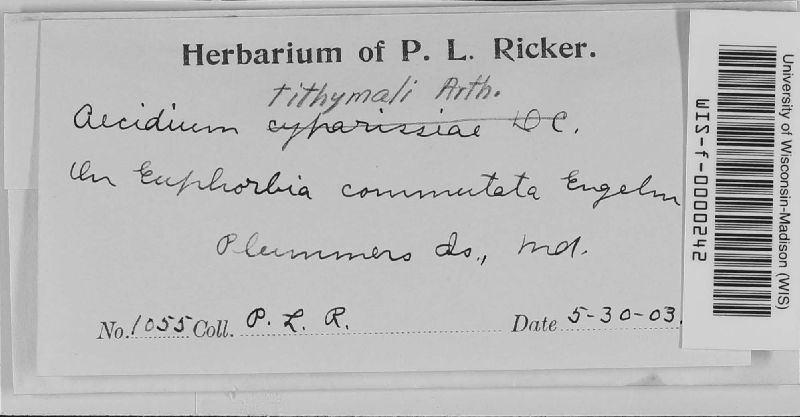 Herbarium of P. L. Ricker.
tithymali Arth.
Aecidium cyparissiae DC.
On Euphorbia commutata Engelm
Plummers Is., Md.
No. 1055 Coll. P. L. R. Date 5-30-03.
University of Wisconsin-Madison (WIS)
WIS-f-0000242